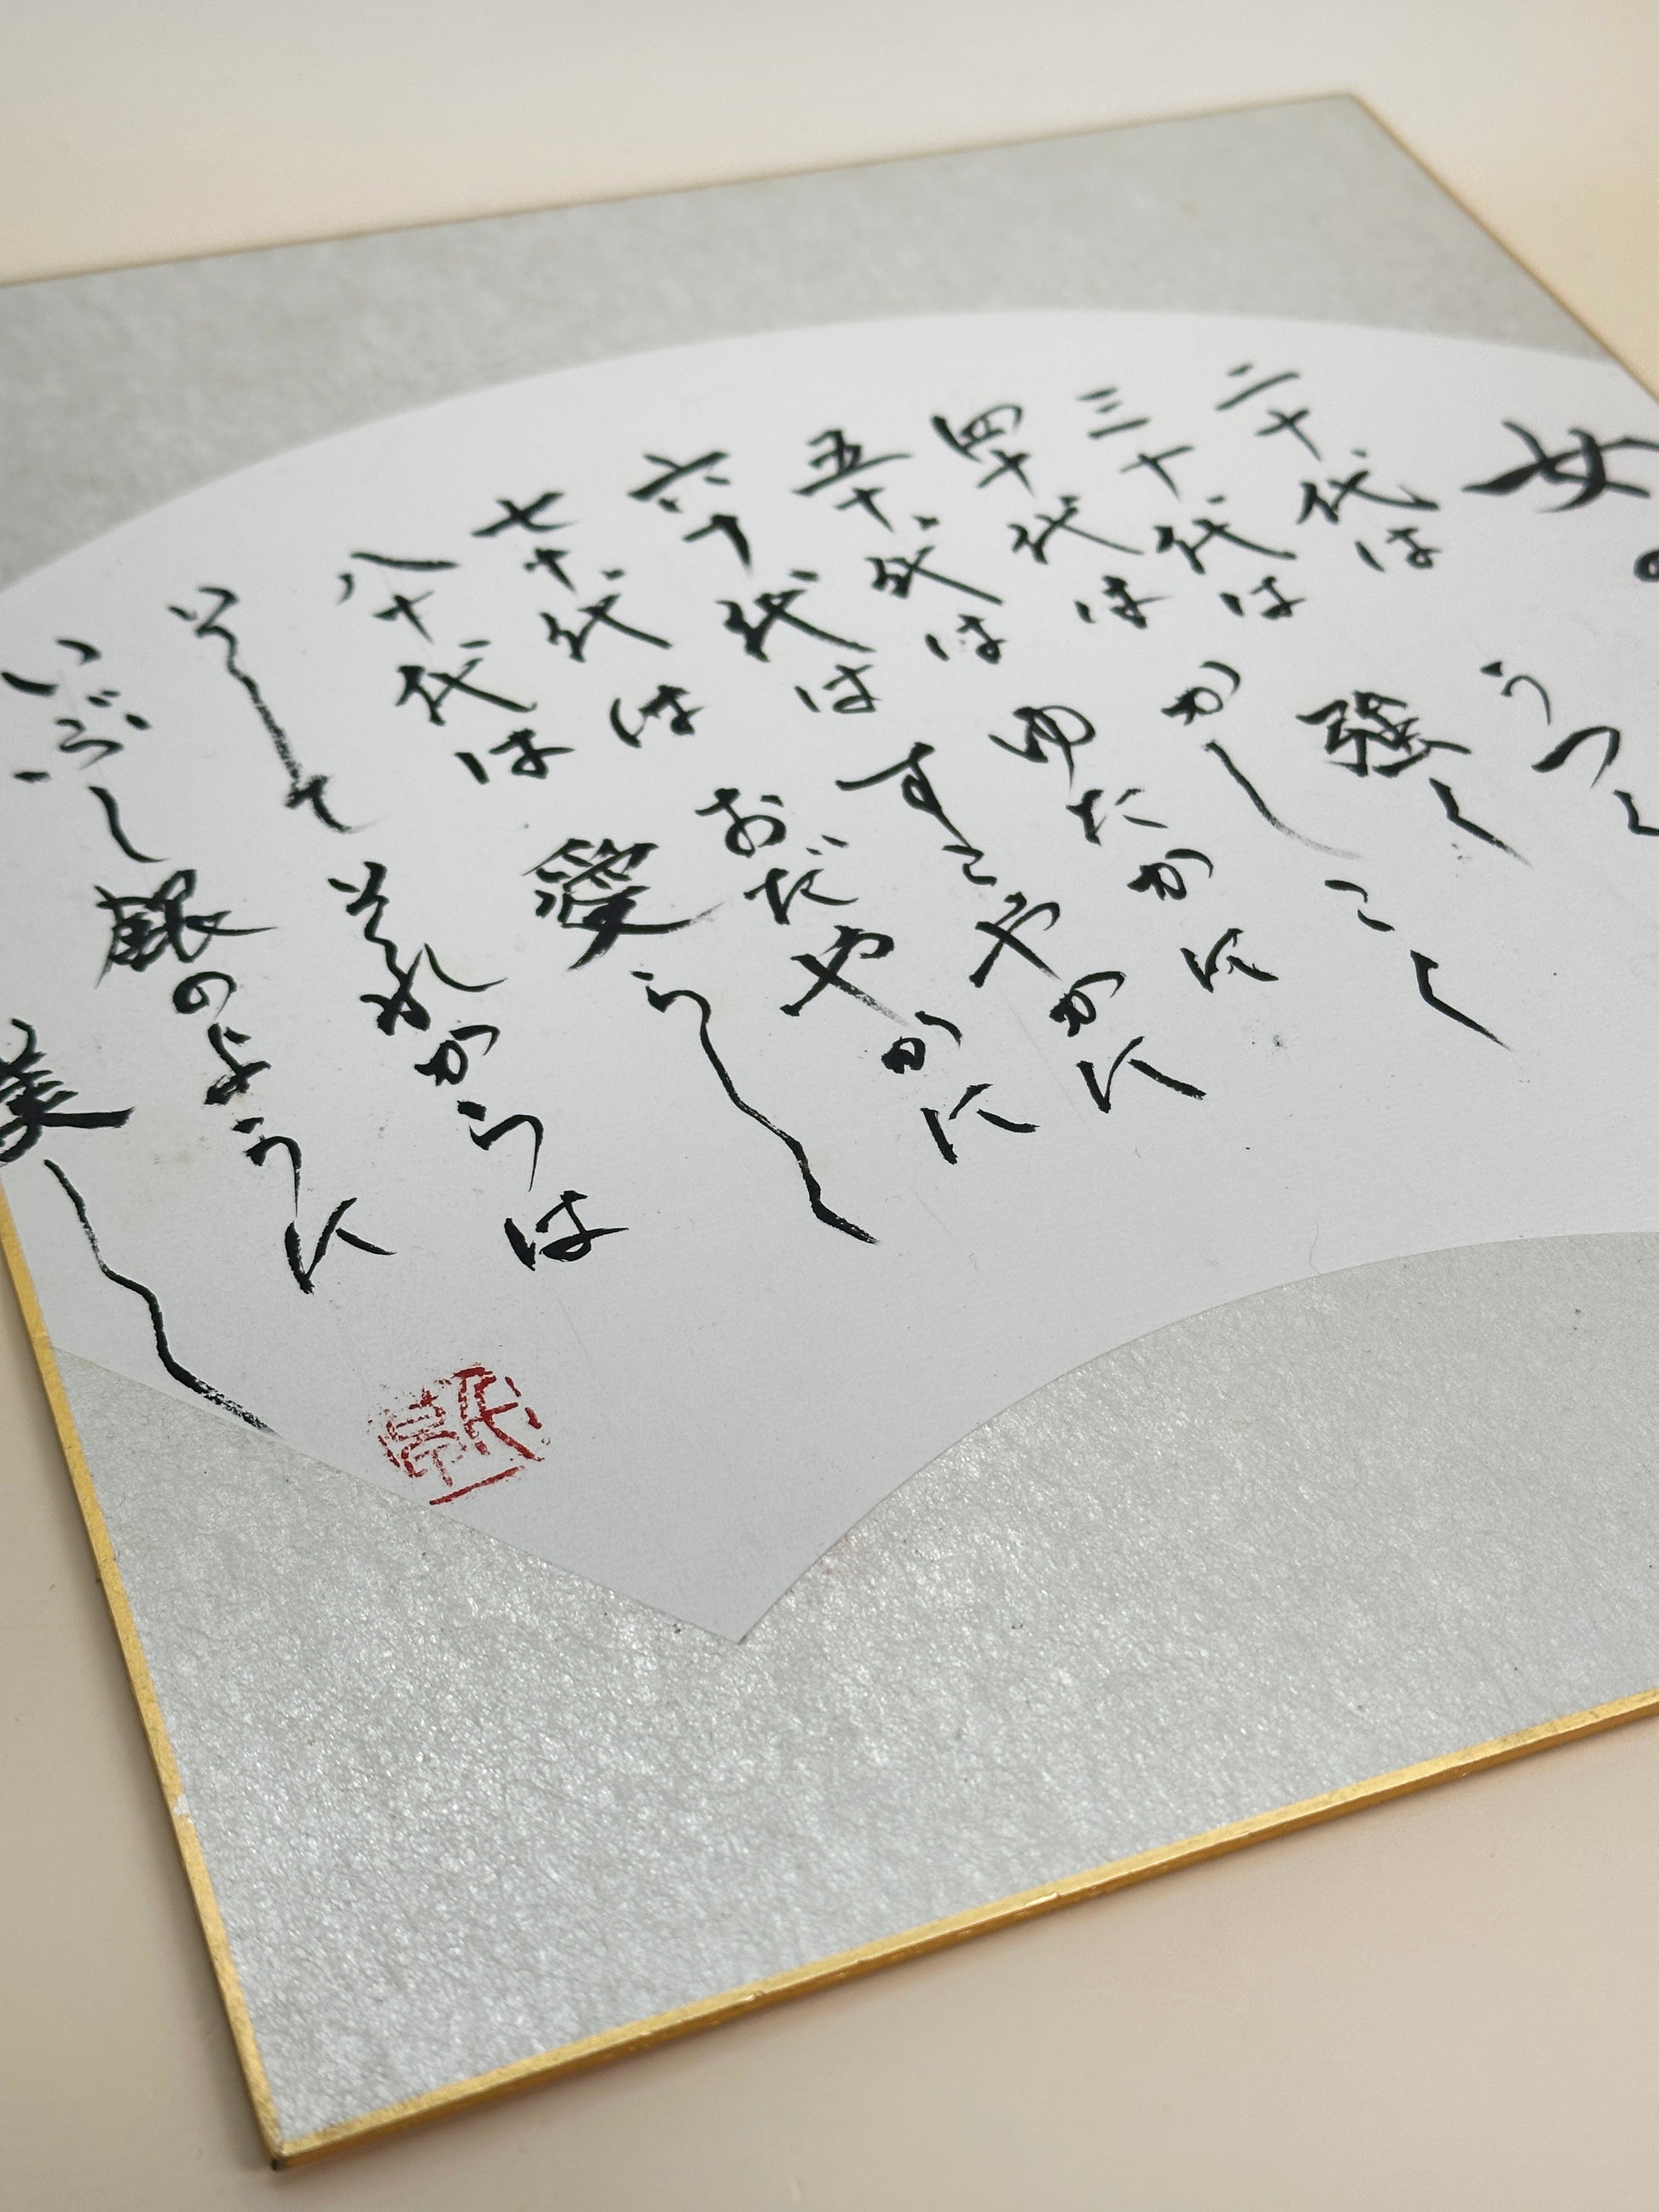 女
二十代は うつく
三十代は 強く
四十代は かしこく
五十代は ゆたかに
六十代は すこやかに
七十代は おだやかに
八十代は 愛らしく
そして それからは
いぶし銀のように
美しく